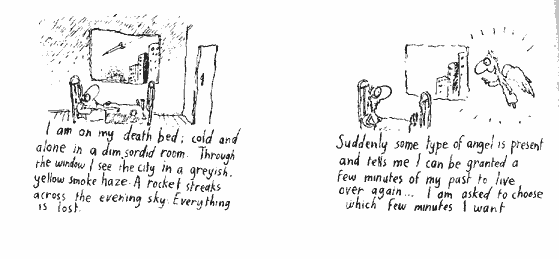 I am on my death bed; cold and
alone in a dim sordid room. Through
the window I see the city in a greyish,
yellow smoke haze. A rocket streaks
across the evening sky. Everything
is lost.
Suddenly some type of angel is present
and tells me I can be granted a
few minutes of my past to live
over again... I am asked to choose
which few minutes I want